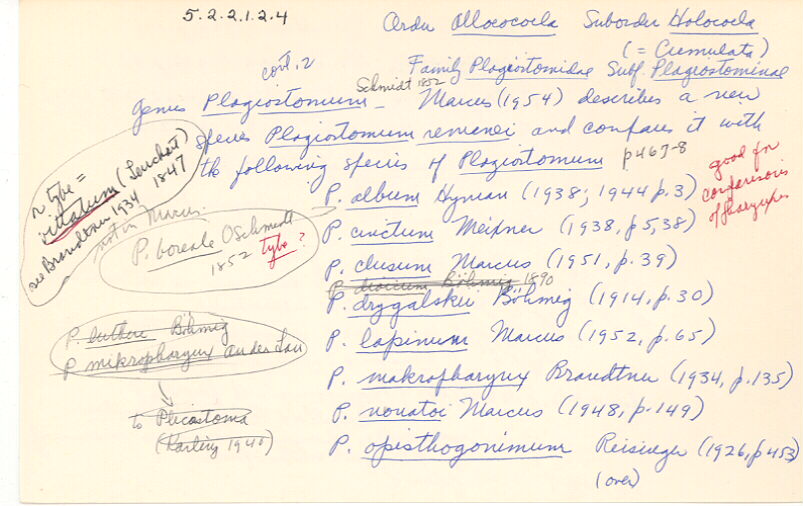 5.2.2.1.2.4
Order Allococoela Suborder Holocoela
(= Cumulata)
cont. 2
Family Plagiostomidae Subf. Plagiostominae
Schmidt 1852
Genus Plagiostomum - Marcus (1954) describes a new
species Plagiostomum remanei and compares it with
the following species of Plagiostomum p467-8
good for
comparisons
of pharynxes
type =
vittatum (Leuckart)
1847
see Brandtner 1934
not in Marcus.
P. boreale O Schmidt
1852 type?
P. album Hyman (1938; 1944 p.3)
P. cinctum Meixner (1938, p5,38)
P. clusum Marcus (1951, p.39)
P. dioicum Böhmig 1890
P. drygalskii Böhmig (1914, p.30)
P. lapinum Marcus (1952, p.65)
P. makropharynx Brandtner (1934, p.135)
P. nonatoi Marcus (1948, p.149)
P. opisthogonimum Reisinger (1926, p453)
(over)
P. luthere Böhmig
P mikropharynx an der Lan
to Plicastoma
(Karling 1940)